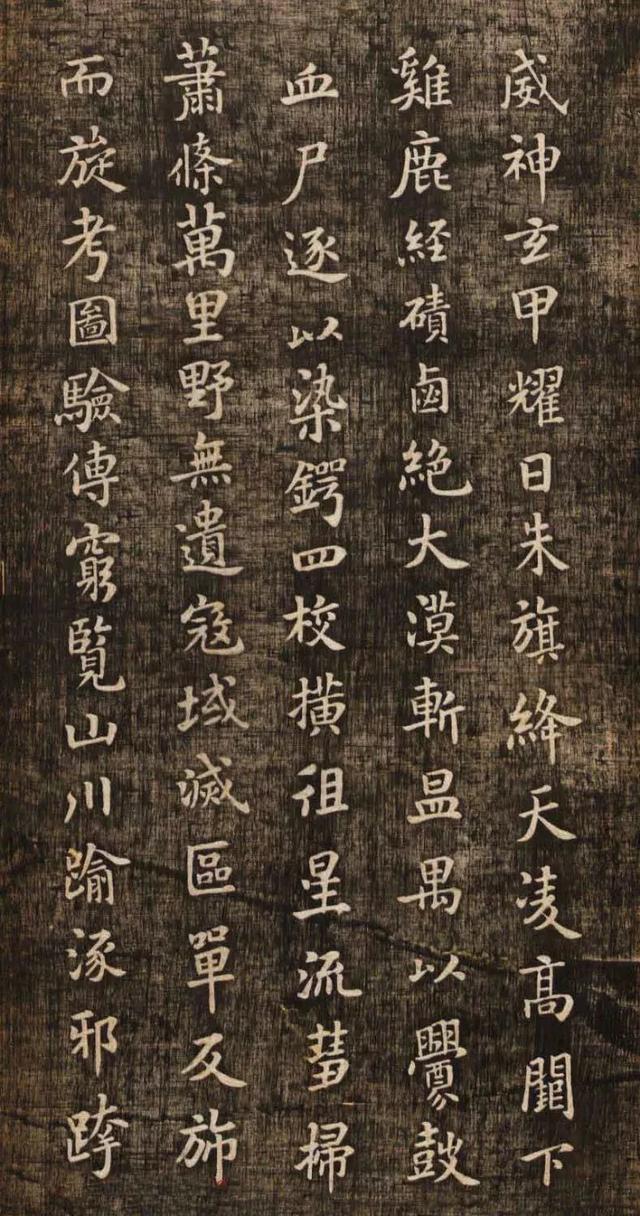 威神玄甲耀日朱旗絳天凌高闕下
雞鹿経磧鹵絶大漠斬昷禺以釁鼓
血尸逐以染鍔四校撗徂星流彗掃
蕭條萬里野無遺寇域滅區單反斾
而旋考圖驗傳窮覽山川踰涿邪跨